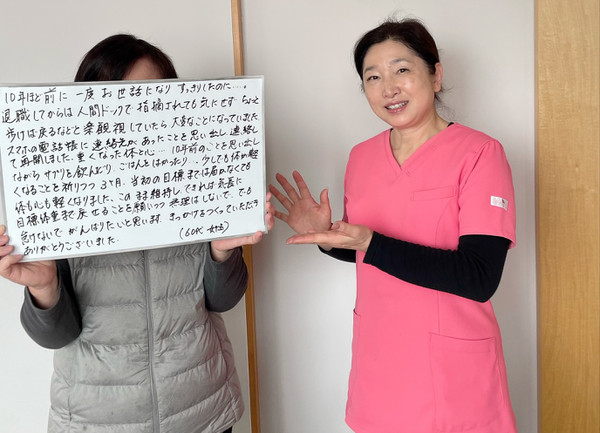 10年ほど前に一度お世話になりすっきりしたのに…。
退職してからは人間ドックで指摘されても気にせず ちょっと
歩けば戻るなどと楽観視していたら大変なことになっていました
スマホの電話帳に連絡先があったことを思い出し連絡し
て再開しました。重くなった体とし… 10年前のことを思い出し
ながら サプリを飲んだり、ごはんをはかったり… 少しでも体が軽
くなることを祈りつつ3ヶ月。当初の目標までは届かなくても
体も心も軽くなりました。このまま維持しできれば気長に
目標体重まで戻せることを願いつつ 無理はしないで、でも
怠けないで がんばりたいと思います。きっかけをつくっていただき
ありがとうございました。 (60代 女性)